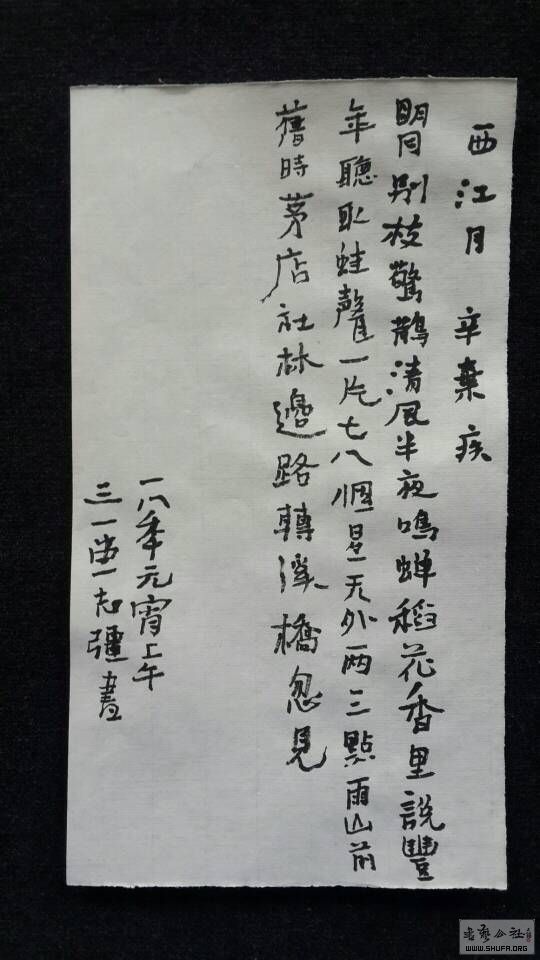 西江月 辛棄疾
明月別枝驚鵲清風半夜鳴蟬稻花香里說豐
年聽取蛙聲一片七八個星天外兩三點雨山前
舊時茅店社林邊路轉溪橋忽見
一八年元宵上午
三一堂志疆書
WWW.SHUFA.ORG